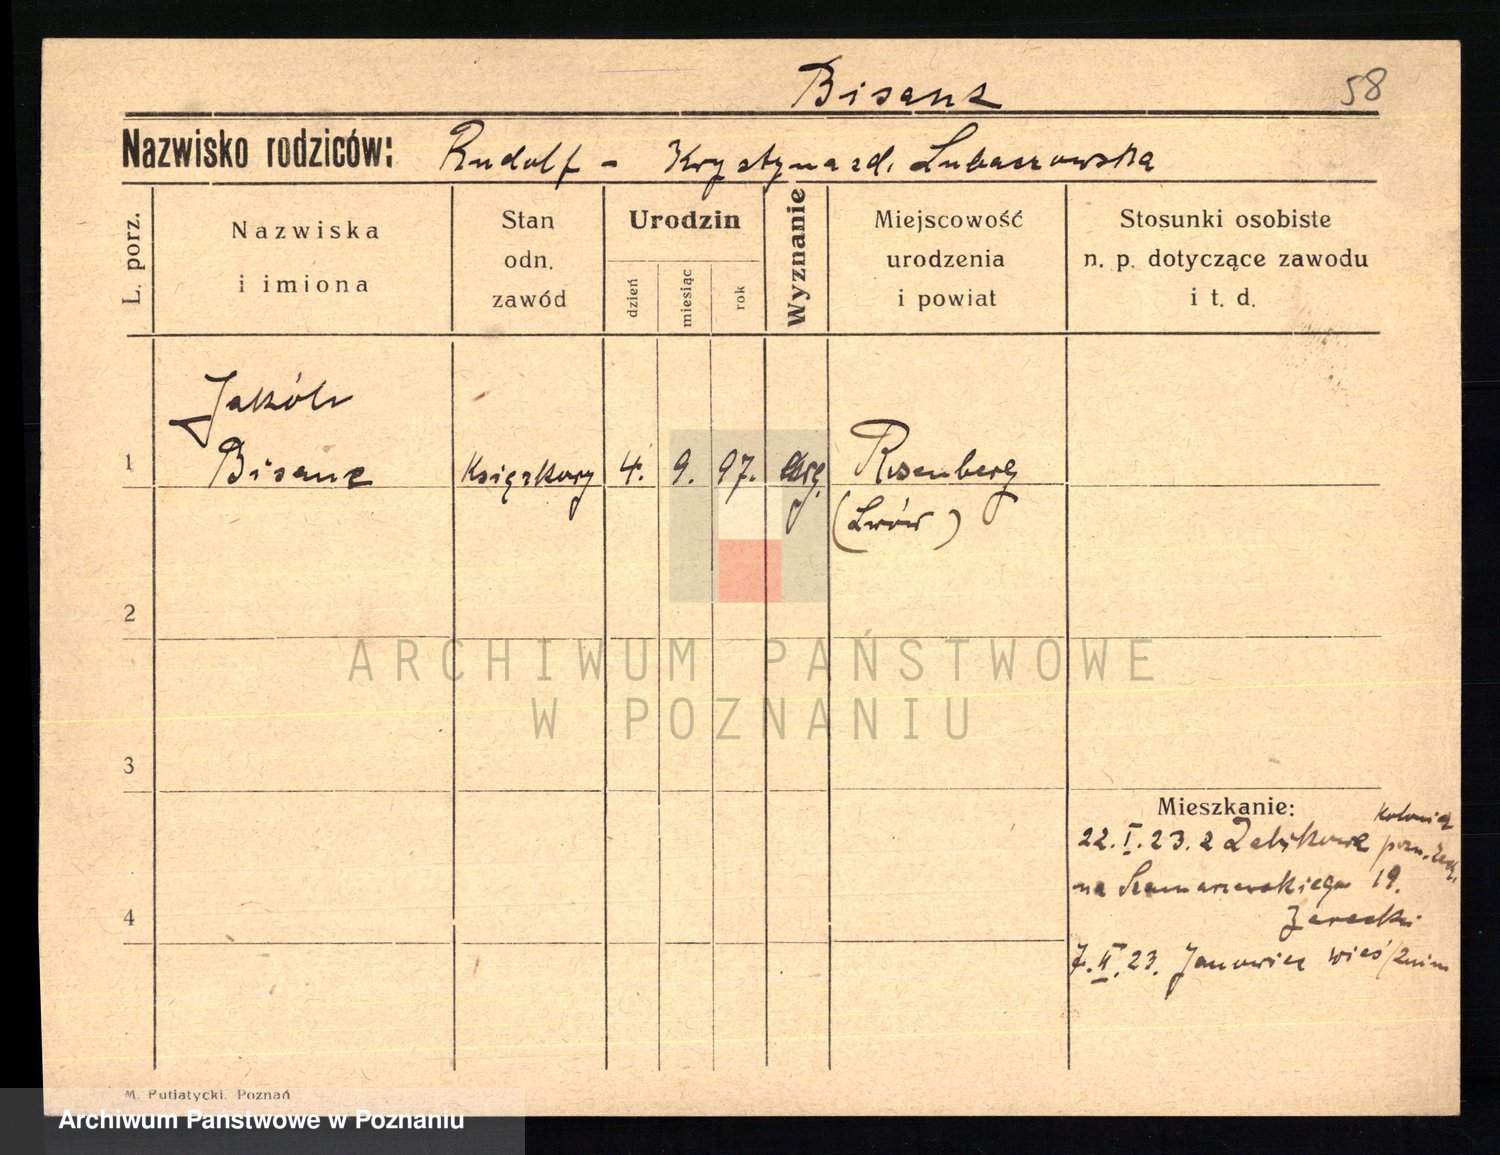 Bisanz
58
Nazwisko rodziców: Rudolf - Krystyna zd. Lubaszowska
L. porz.
Nazwiska
i imiona
Stan
odn.
zawód
Urodzin
dzień
miesiąc
rok
Wyznanie
Miejscowość
urodzenia
i powiat
Stosunki osobiste
n. p. dotyczące zawodu
i t. d.
Jakób
1 Bisanz Książkowy 4. 9. 97. Rosenberg
(Lwów)
2
3
4
Mieszkanie:
kolonia
22. I. 23. z Żabikowa
na Szamarzewskiego 19.
Żarecki
7. II. 23. Janowiec wieś/Żnin
M. Putiatycki. Poznań
ARCHIWUM PAŃSTWOWE
W POZNANIU
Archiwum Państwowe w Poznaniu